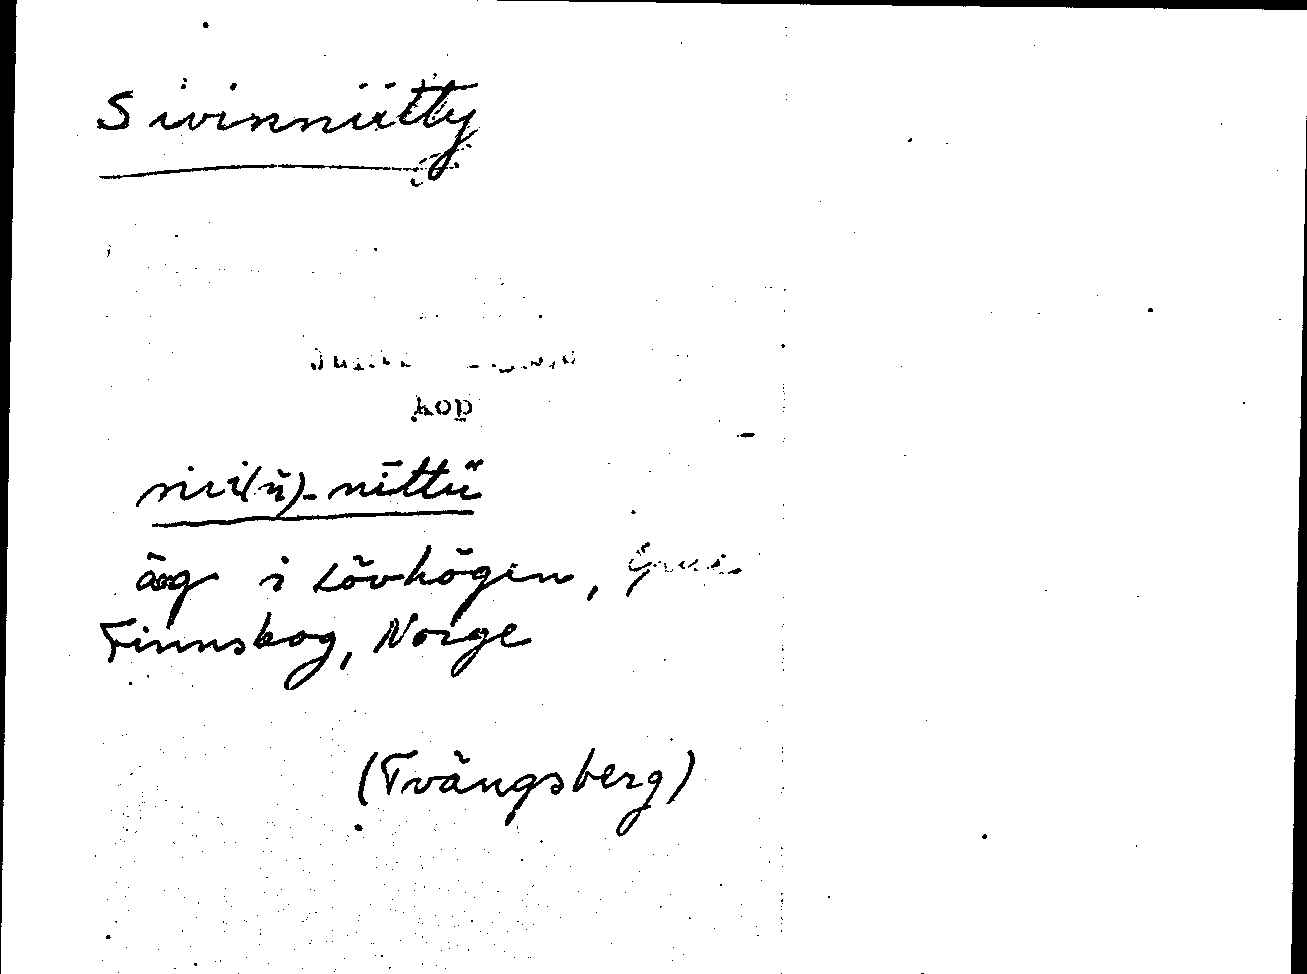 Sivinniitty
sivi(ń)-nīttü
äg i Lövhögen, Grue
Finnskog, Norge
(Tvängsberg)